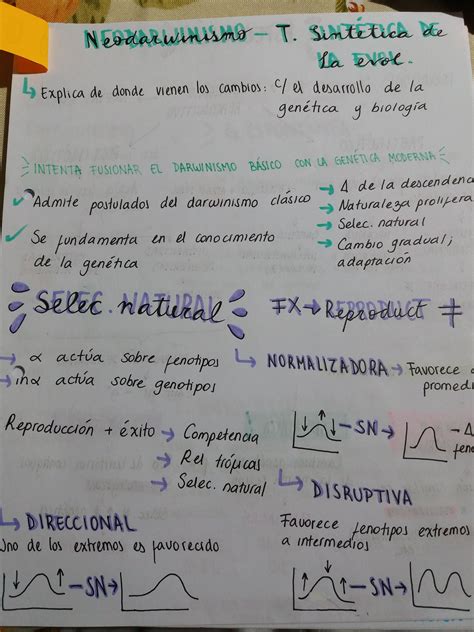 Neodarwinismo - T. Sintética de
la evol.
↳ Explica de donde vienen los cambios: c/ el desarrollo de la
genética y biología
INTENTA FUSIONAR EL DARWINISMO BÁSICO CON LA GENÉTICA MODERNA
✓ Admite postulados del darwinismo clásico
→ Δ de la descendenc
→ Naturaleza prolifera
→ Selec. natural
→ Cambio gradual;
adaptación
✓ Se fundamenta en el conocimiento
de la genética
Selec natural
FX → Reproduct ≠
→ α actúa sobre fenotipos
→ inα actúa sobre genotipos
Reproducción + éxito → Competencia
→ Rel tróficas
→ Selec. natural
↳ NORMALIZADORA → Favorece
promedi
↓ ↑ ↓ -SN→ - Δ
fen
↳ DIRECCIONAL
Uno de los extremos es favorecido
↓ ↑ -SN→
↳ DISRUPTIVA
Favorece fenotipos extremos
a intermedios
↑ ↓ ↑ -SN→